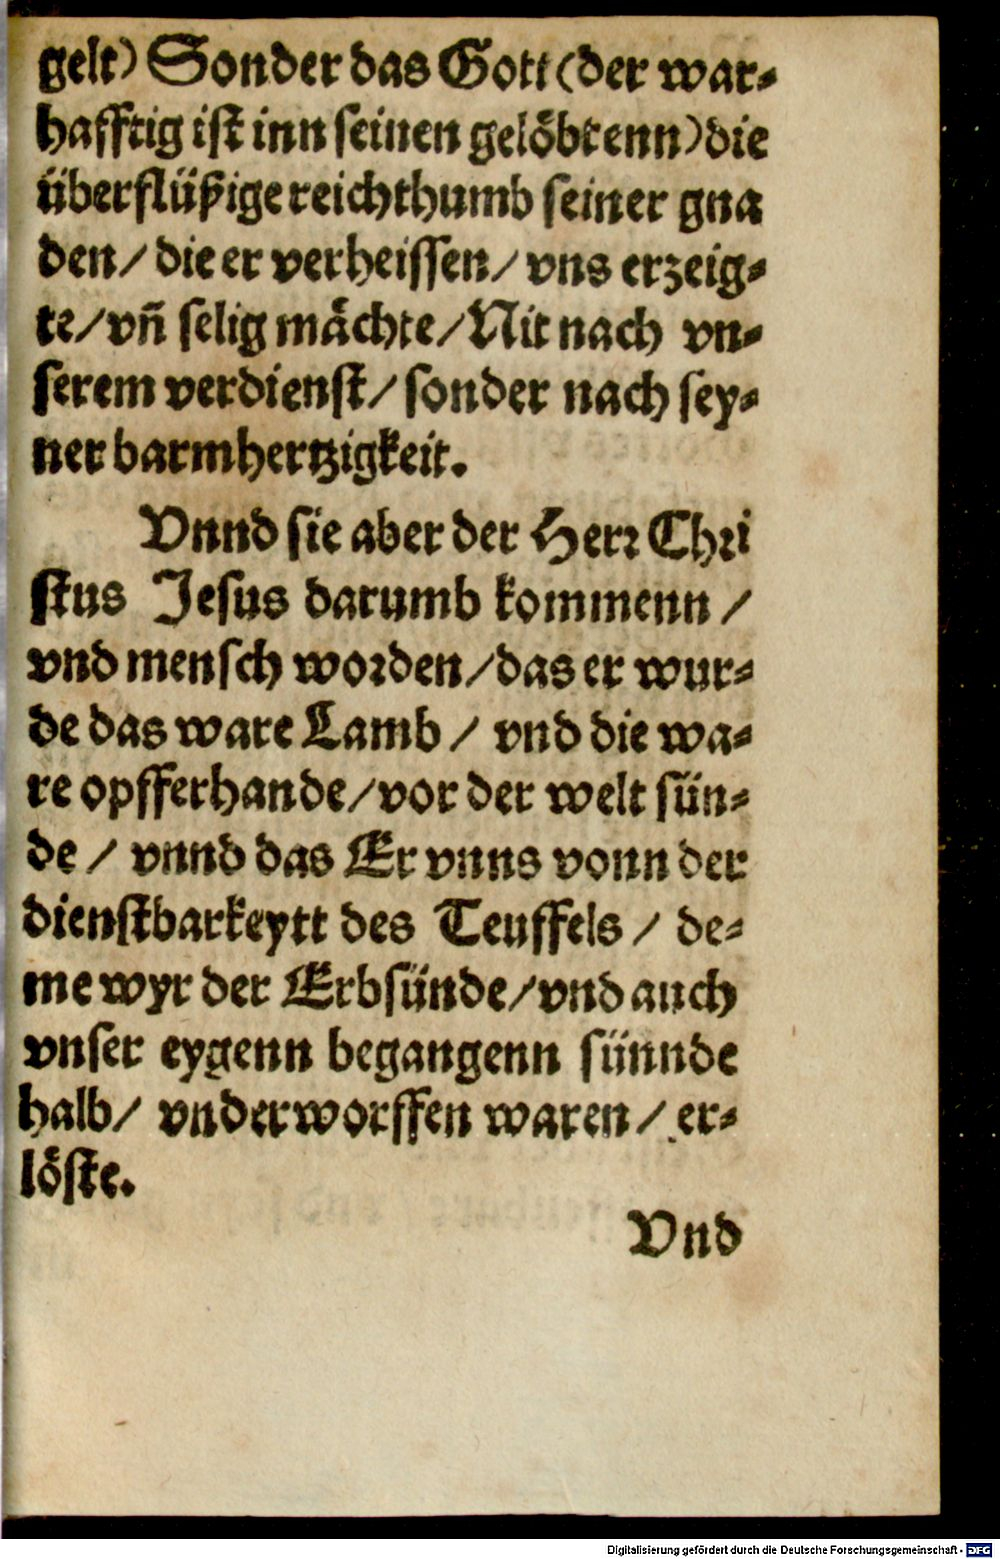 gelt) Sonder das Gott (der war⸗
hafftig ist inn seinen gelöbtenn) die
überflüßige reichthumb seiner gna
den / die er verheissen / vns erzeig⸗
te / vñ selig mächte / Nit nach vn⸗
serem verdienst / sonder nach sey⸗
ner barmhertzigkeit.
Vnnd sie aber der Herr Chri
stus Jesus darumb kommenn /
vnd mensch worden / das er wur⸗
de das ware Lamb / vnd die wa⸗
re opfferhande / vor der welt sün⸗
de / vnnd das Er vnns vonn der
dienstbarkeytt des Teuffels / de⸗
me wyr der Erbsünde / vnd auch
vnser eygenn begangenn sünnde
halb / vnderworffen waren / er⸗
löste.
Vnd
Digitalisierung gefördert durch die Deutsche Forschungsgemeinschaft - DFG